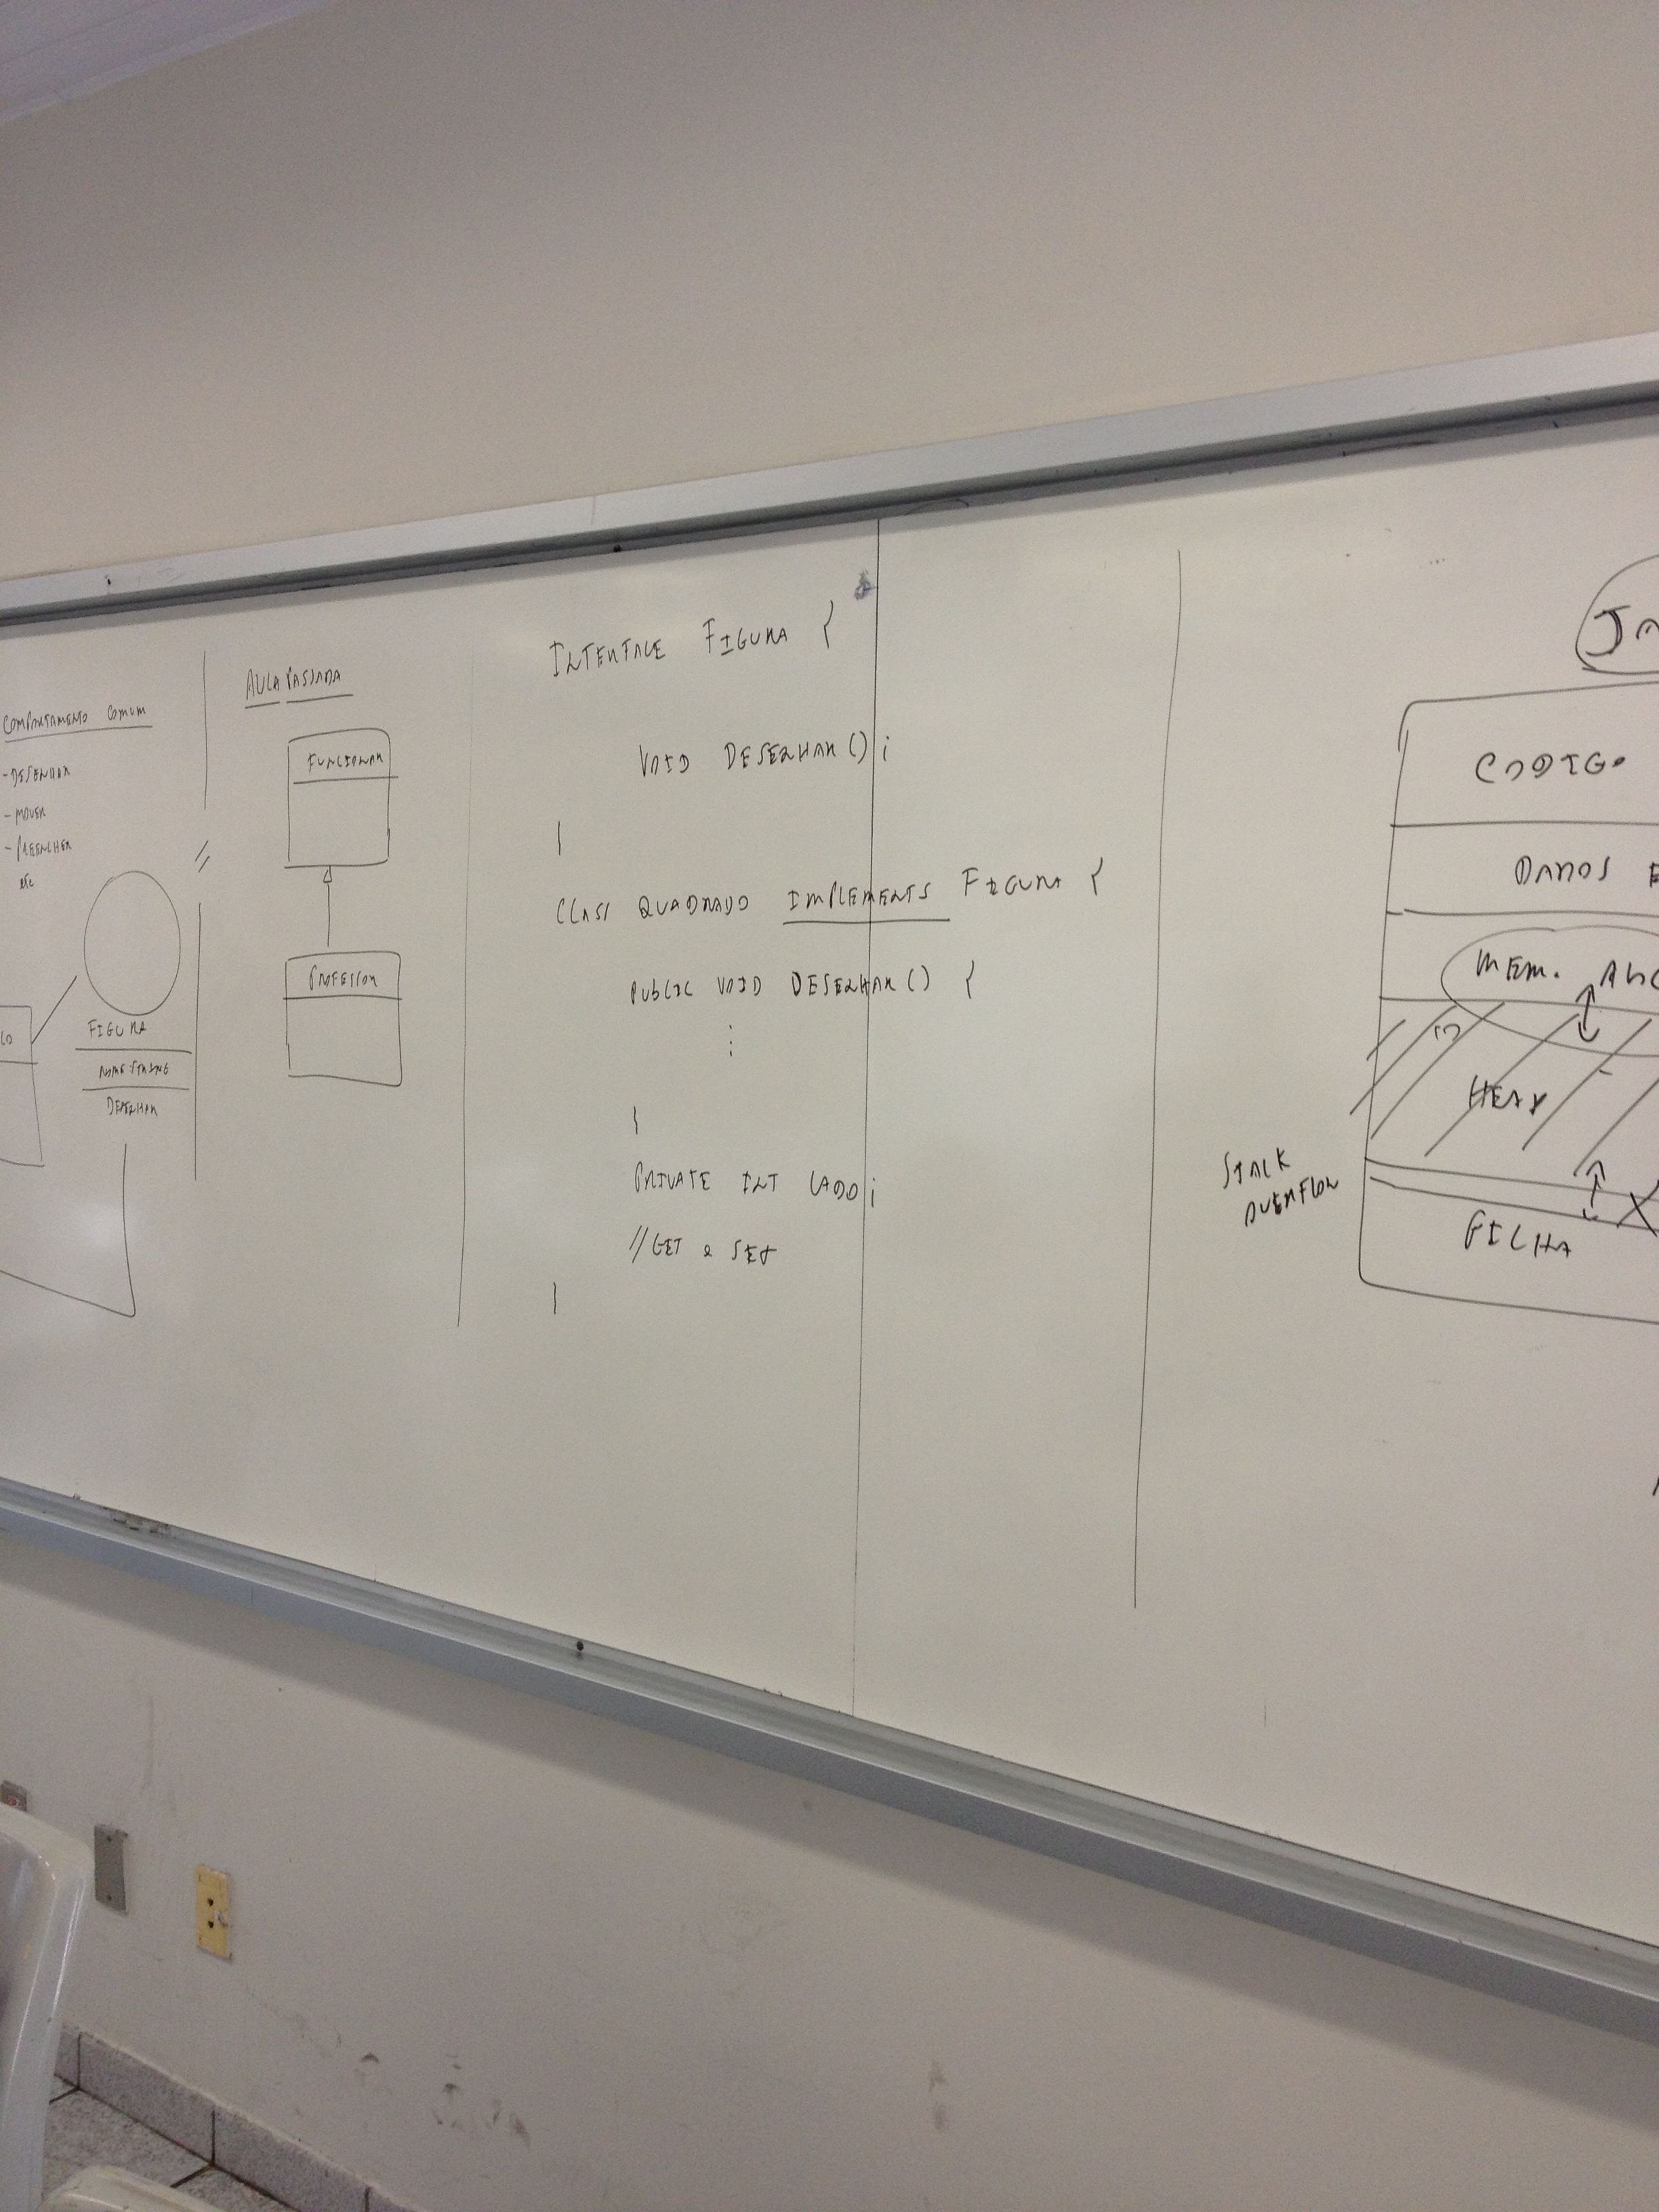 COMPORTAMENTO COMUM
- DESENHAR
- MOVER
- PREENCHER
etc
LO
FIGURA
NOME:STRING
DESENHAR
AULA PASSADA
FUNCIONAR
PROFESSOR
INTERFACE FIGURA {
VOID DESENHAR();
}
CLASS QUADRADO IMPLEMENTS FIGURA {
PUBLIC VOID DESENHAR() {
⋮
}
PRIVATE INT LADO;
//GET & SET
}
CODIGO
DADOS E
MEM.
HEAP
STACK
OVERFLOW
PILHA